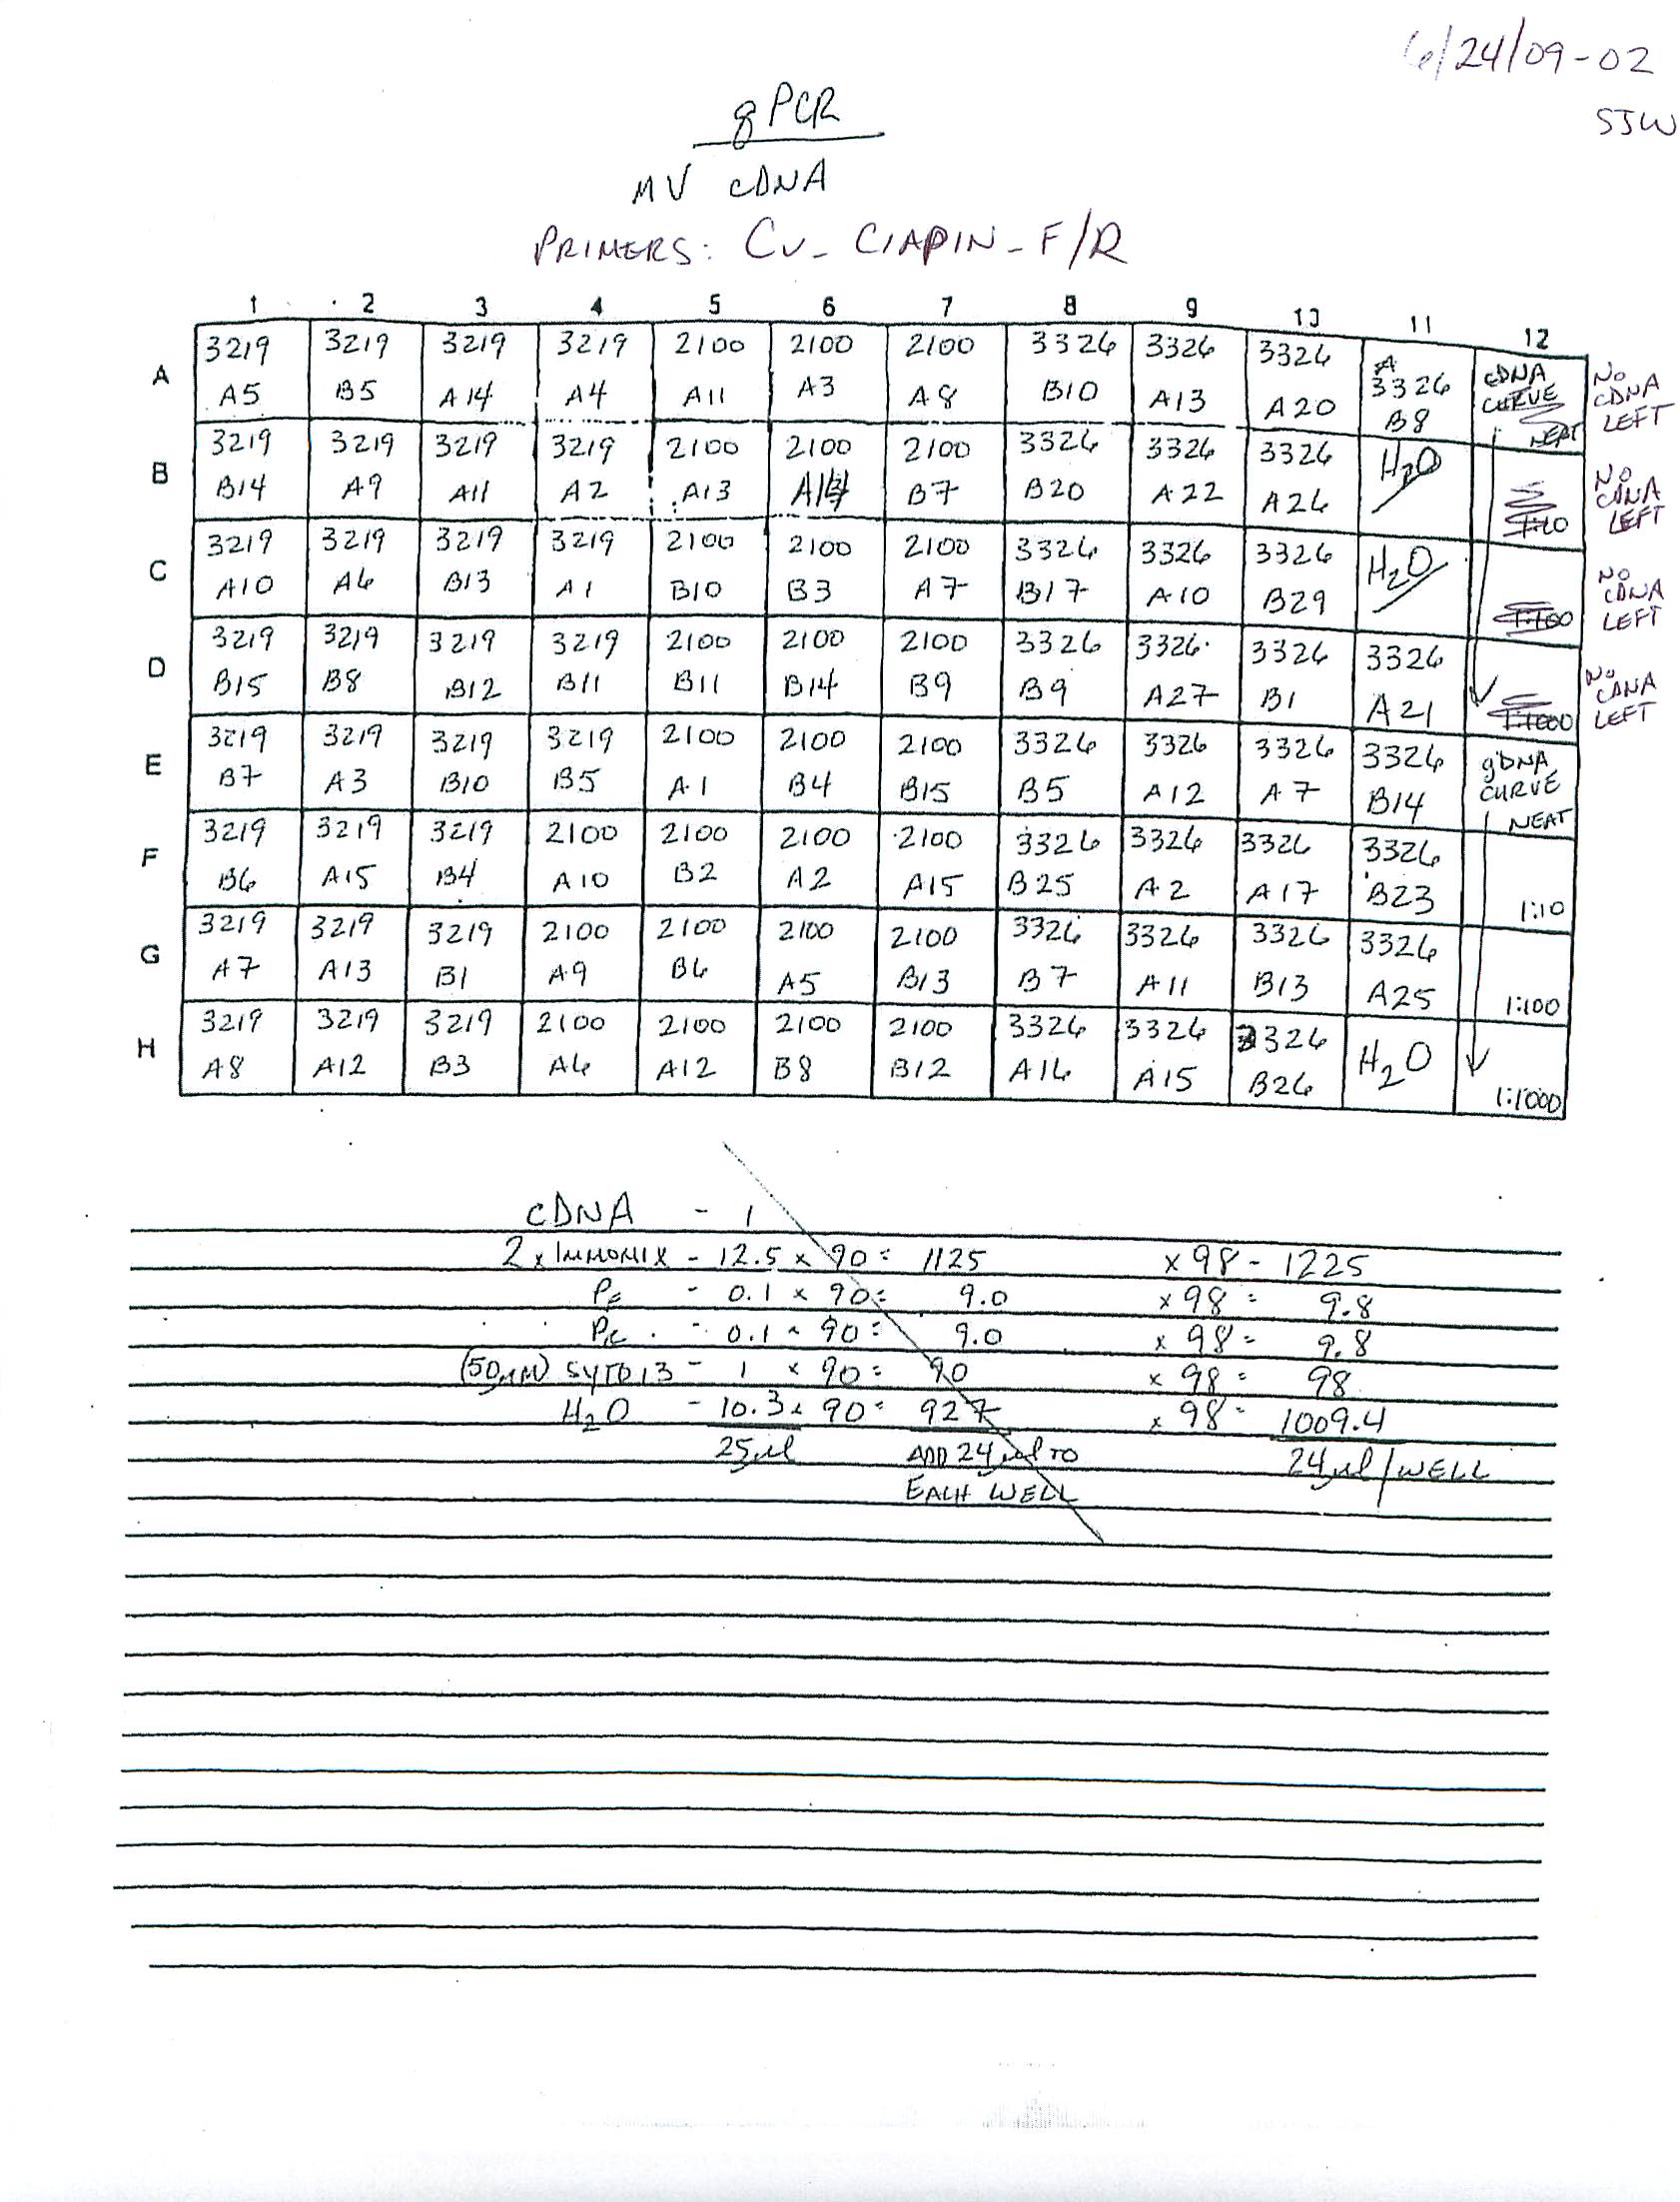 6/24/09-02
SJW
qPCR
MV cDNA
PRIMERS: Cv_CIAPIN_F/R
1 2 3 4 5 6 7 8 9 10 11 12
A 3219 3219 3219 3219 2100 2100 2100 3326 3326 3326 3326 cDNA CURVE NEAT NO CDNA LEFT
A5 B5 A14 A4 A11 A3 A8 B10 A13 A20 B8
B 3219 3219 3219 3219 2100 2100 2100 3326 3326 3326 H2O 1:10 NO CDNA LEFT
B14 A9 A11 A2 A13 A14 B7 B20 A22 A26
C 3219 3219 3219 3219 2100 2100 2100 3326 3326 3326 H2O 1:100 NO CDNA LEFT
A10 A6 B13 A1 B10 B3 A7 B17 A10 B29
D 3219 3219 3219 3219 2100 2100 2100 3326 3326 3326 3326 1:1000 NO CDNA LEFT
B15 B8 B12 B11 B11 B14 B9 B9 A27 B1 A21
E 3219 3219 3219 3219 2100 2100 2100 3326 3326 3326 3326 gDNA CURVE NEAT
B7 A3 B10 B5 A1 B4 B15 B5 A12 A7 B14
F 3219 3219 3219 2100 2100 2100 2100 3326 3326 3326 3326 1:10
B6 A15 B4 A10 B2 A2 A15 B25 A2 A17 B23
G 3219 3219 3219 2100 2100 2100 2100 3326 3326 3326 3326 1:100
A7 A13 B1 A9 B6 A5 B13 B7 A11 B13 A25
H 3219 3219 3219 2100 2100 2100 2100 3326 3326 3326 H2O 1:1000
A8 A12 B3 A6 A12 B8 B12 A16 A15 B26
cDNA - 1
2x IMMOMIX - 12.5 x 90 = 1125 x 98 - 1225
PF - 0.1 x 90 = 9.0 x 98 = 9.8
PR - 0.1 x 90 = 9.0 x 98 = 9.8
(50µM) SYTO 13 - 1 x 90 = 90 x 98 = 98
H2O - 10.3 x 90 = 927 x 98 = 1009.4
25µl ADD 24µl TO 24µl/WELL
EACH WELL